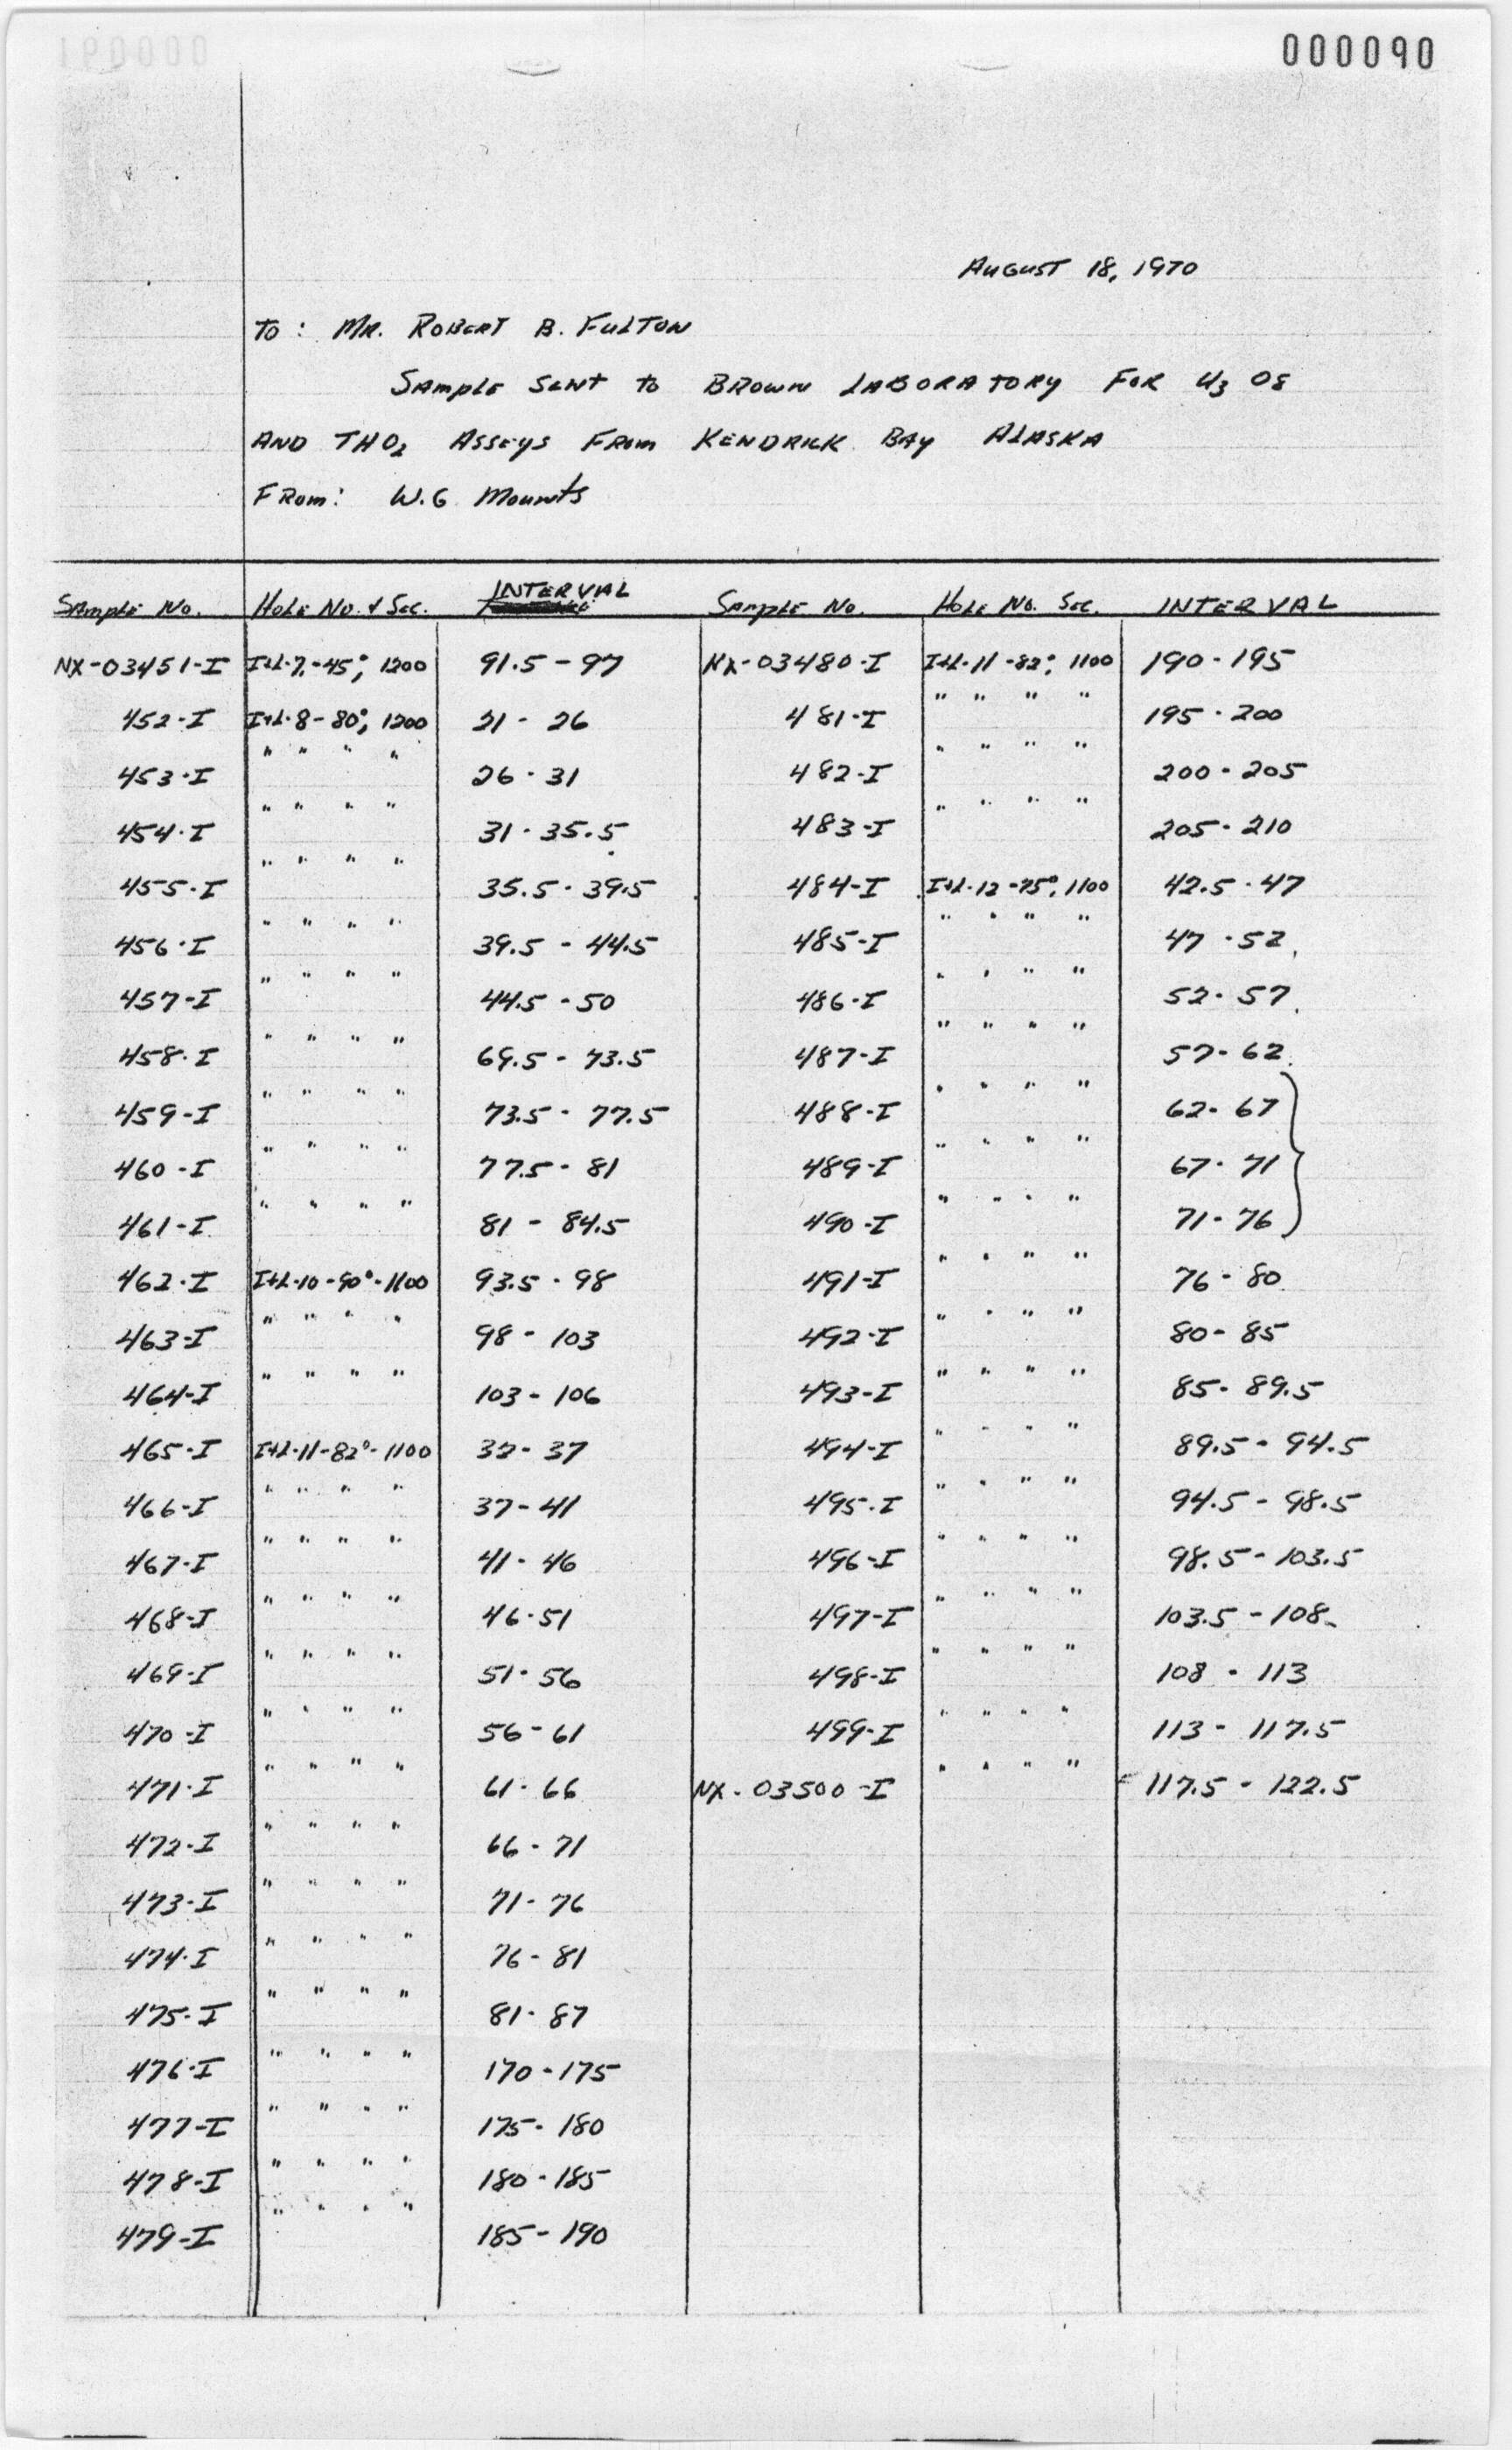 000090
AUGUST 18, 1970
TO: MR. ROBERT B. FULTON
SAMPLE SENT TO BROWN LABORATORY FOR U3 O8
AND THO2 ASSEYS FROM KENDRICK BAY ALASKA
FROM: W.G. MOUNTS
SAMPLE NO. HOLE NO. & SEC. INTERVAL SAMPLE NO. HOLE NO. SEC. INTERVAL
NX-03451-I I&L-7,-45°, 1200 91.5 - 97 NX-03480-I I&L-11 -82°, 1100 190 - 195
452-I I&L-8-80°, 1200 21 - 26 481-I " " " " 195 - 200
453-I " " " " 26 - 31 482-I " " " " 200 - 205
454-I " " " " 31 - 35.5 483-I " " " " 205 - 210
455-I " " " " 35.5 - 39.5 484-I I&L-12 -75°, 1100 42.5 - 47
456-I " " " " 39.5 - 44.5 485-I " " " " 47 - 52
457-I " " " " 44.5 - 50 486-I " " " " 52 - 57
458-I " " " " 69.5 - 73.5 487-I " " " " 57 - 62
459-I " " " " 73.5 - 77.5 488-I " " " " 62 - 67
460-I " " " " 77.5 - 81 489-I " " " " 67 - 71
461-I " " " " 81 - 84.5 490-I " " " " 71 - 76
462-I I&L-10-90°-1100 93.5 - 98 491-I " " " " 76 - 80
463-I " " " " 98 - 103 492-I " " " " 80 - 85
464-I " " " " 103 - 106 493-I " " " " 85 - 89.5
465-I I&L-11-82°-1100 32 - 37 494-I " " " " 89.5 - 94.5
466-I " " " " 37 - 41 495-I " " " " 94.5 - 98.5
467-I " " " " 41 - 46 496-I " " " " 98.5 - 103.5
468-I " " " " 46 - 51 497-I " " " " 103.5 - 108
469-I " " " " 51 - 56 498-I " " " " 108 - 113
470-I " " " " 56 - 61 499-I " " " " 113 - 117.5
471-I " " " " 61 - 66 NX-03500-I " " " " 117.5 - 122.5
472-I " " " " 66 - 71
473-I " " " " 71 - 76
474-I " " " " 76 - 81
475-I " " " " 81 - 87
476-I " " " " 170 - 175
477-I " " " " 175 - 180
478-I " " " " 180 - 185
479-I " " " " 185 - 190